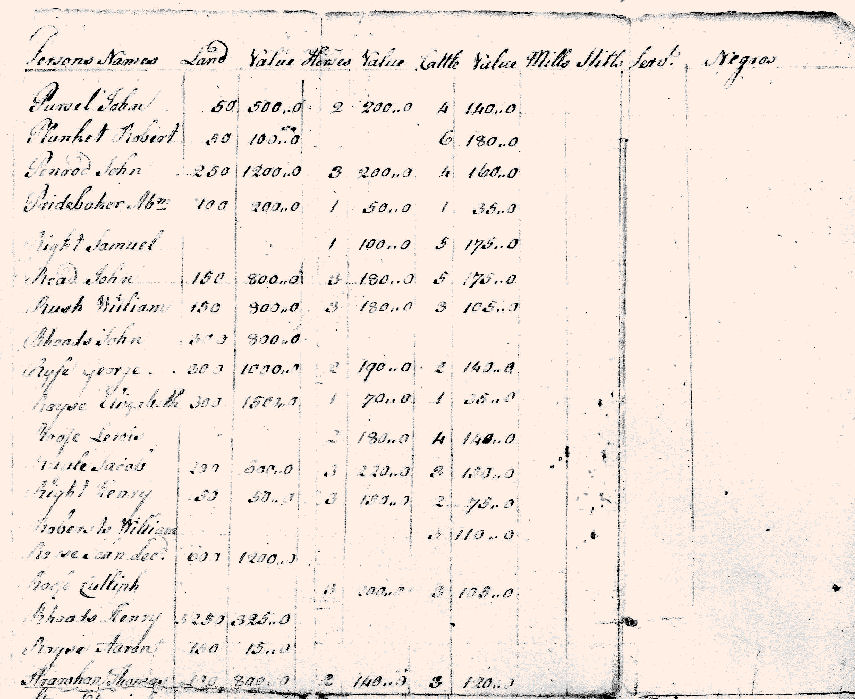 Persons Names Land Value Horses Value Cattle Value Mills Stills Servt. Negros
Pursel John 50 500,,0 2 200,,0 4 140,,0
Plunket Robert 50 100,,0 6 180,,0
Penrod John 250 1200,,0 3 200,,0 4 160,,0
Pridebaker Abm 100 200,,0 1 50,,0 1 35,,0
Right Samuel 1 100,,0 5 175,,0
Read John 150 800,,0 3 180,,0 5 175,,0
Rush William 150 800,,0 3 180,,0 3 105,,0
Rhoads John 300 800,,0
george 200 1000,,0 2 190,,0 2 140,,0
Elizabeth 300 1500,,0 1 70,,0 1 35,,0
Lewis 2 180,,0 4 140,,0
Jacob 200 600,,0 3 220,,0 3 120,,0
Right Henry 50 50,,0 3 150,,0 2 75,,0
Roberts William 3 110,,0
600 1200,,0
3 200,,0 3 105,,0
Rhoads Henry 3250 325,,0
Aaron 150 15,,0
Thomas 800,,0 2 140,,0 3 120,,0